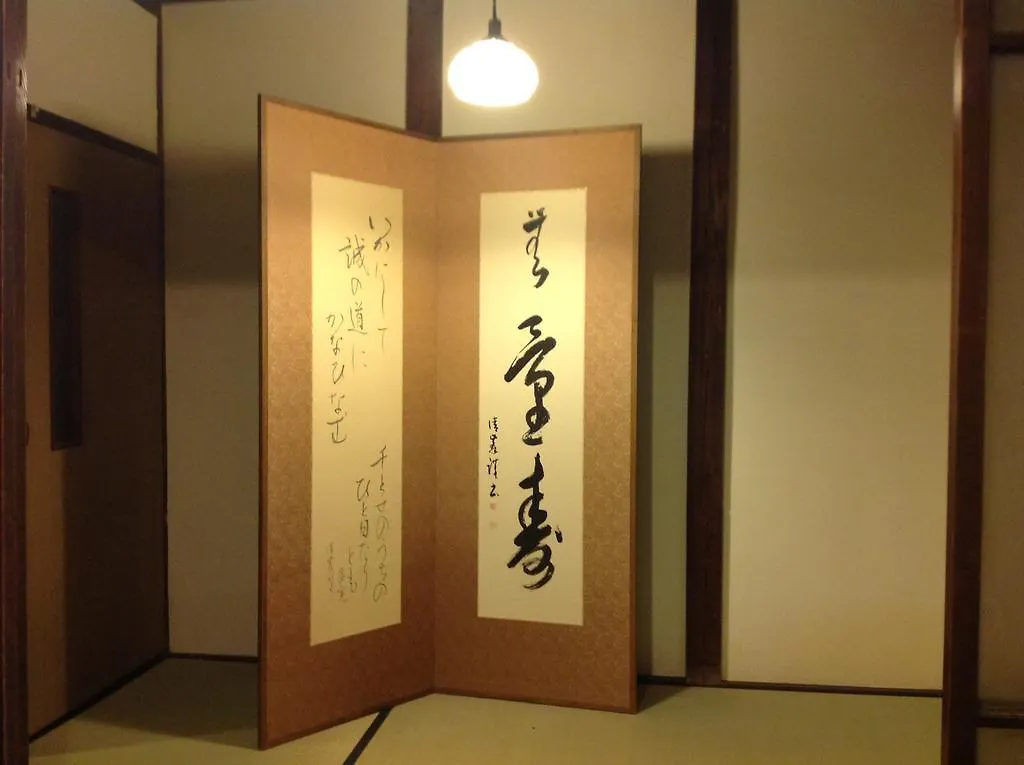 無量寿
いかにして
誠の道に
かなひなむ
千とせのうちの
ひと日なり
とも